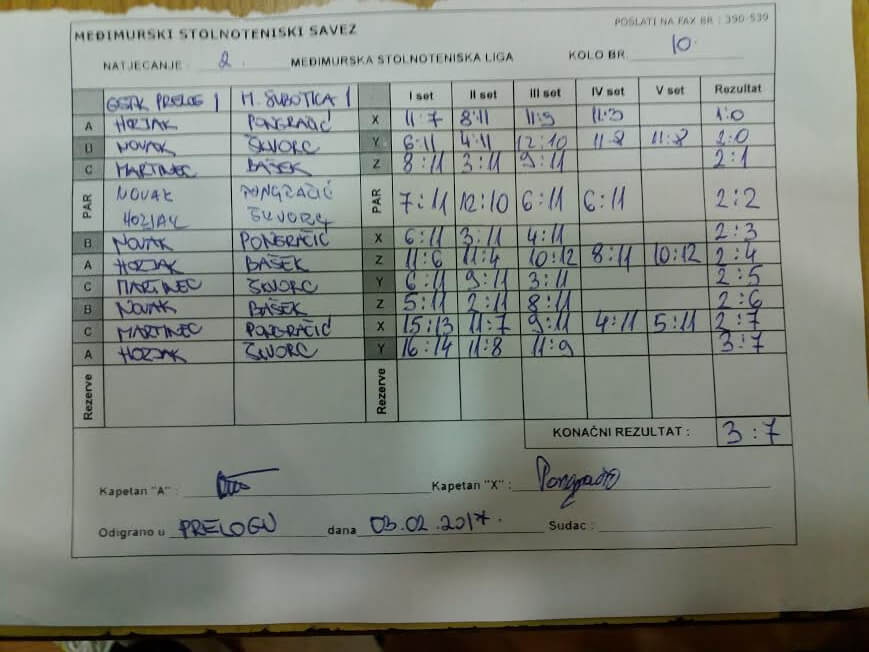 MEĐIMURSKI STOLNOTENISKI SAVEZ
POSLATI NA FAX BR : 390-539
NATJECANJE : 2. MEĐIMURSKA STOLNOTENISKA LIGA KOLO BR. 10.
PRELOG 1 M. SUBOTICA 1 I set II set III set IV set V set Rezultat
A HORJAK PONGRAČIĆ X 11:7 8:11 11:9 11:3 1:0
B NOVAK ŠKVORC Y 6:11 4:11 12:10 11:8 11:8 2:0
C MARTINEC BAŠEK Z 8:11 3:11 9:11 2:1
PAR NOVAK PONGRAČIĆ PAR 7:11 12:10 6:11 6:11 2:2
HORJAK ŠKVORC
B NOVAK PONGRAČIĆ X 6:11 3:11 4:11 2:3
A HORJAK BAŠEK Z 11:6 11:4 10:12 8:11 10:12 2:4
C MARTINEC ŠKVORC Y 6:11 9:11 3:11 2:5
B NOVAK BAŠEK Z 5:11 2:11 8:11 2:6
C MARTINEC PONGRAČIĆ X 15:13 11:7 9:11 4:11 5:11 2:7
A HORJAK ŠKVORC Y 16:14 11:8 11:9 3:7
Rezerve Rezerve
KONAČNI REZULTAT : 3:7
Kapetan "A" : Kapetan "X" : Pongračić
Odigrano u PRELOGU dana 03.02.2017. Sudac :